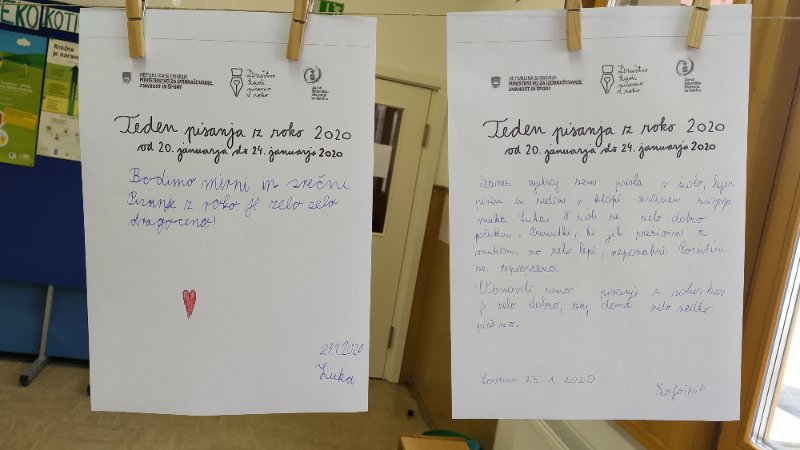 EKOLKOTI
Krožno
je naravno
REPUBLIKA SLOVENIJA
MINISTRSTVO ZA IZOBRAŽEVANJE,
ZNANOST IN ŠPORT
Društvo
radi
pišemo
z roko
Teden pisanja z roko 2020
od 20. januarja do 24. januarja 2020
Bodimo mirni in srečni
Pisanje z roko je zelo zelo
dragoceno!
23.1.2020
Luka
REPUBLIKA SLOVENIJA
MINISTRSTVO ZA IZOBRAŽEVANJE,
ZNANOST IN ŠPORT
Društvo
radi
pišemo
z roko
Teden pisanja z roko 2020
od 20. januarja do 24. januarja 2020
Danes zjutraj sem prišla v šolo, kjer
pišem in sedim v klopi zraven svojega
vnuka Luka. V šoli se zelo dobro
počutim. Trenutki, ki jih preživim z
vnukom, so zelo lepi, nepozabni. Počutim
se
smo pisanje z roko, kar
je zelo dobro, saj doma zelo redko
pišemo.
23. 1. 2020